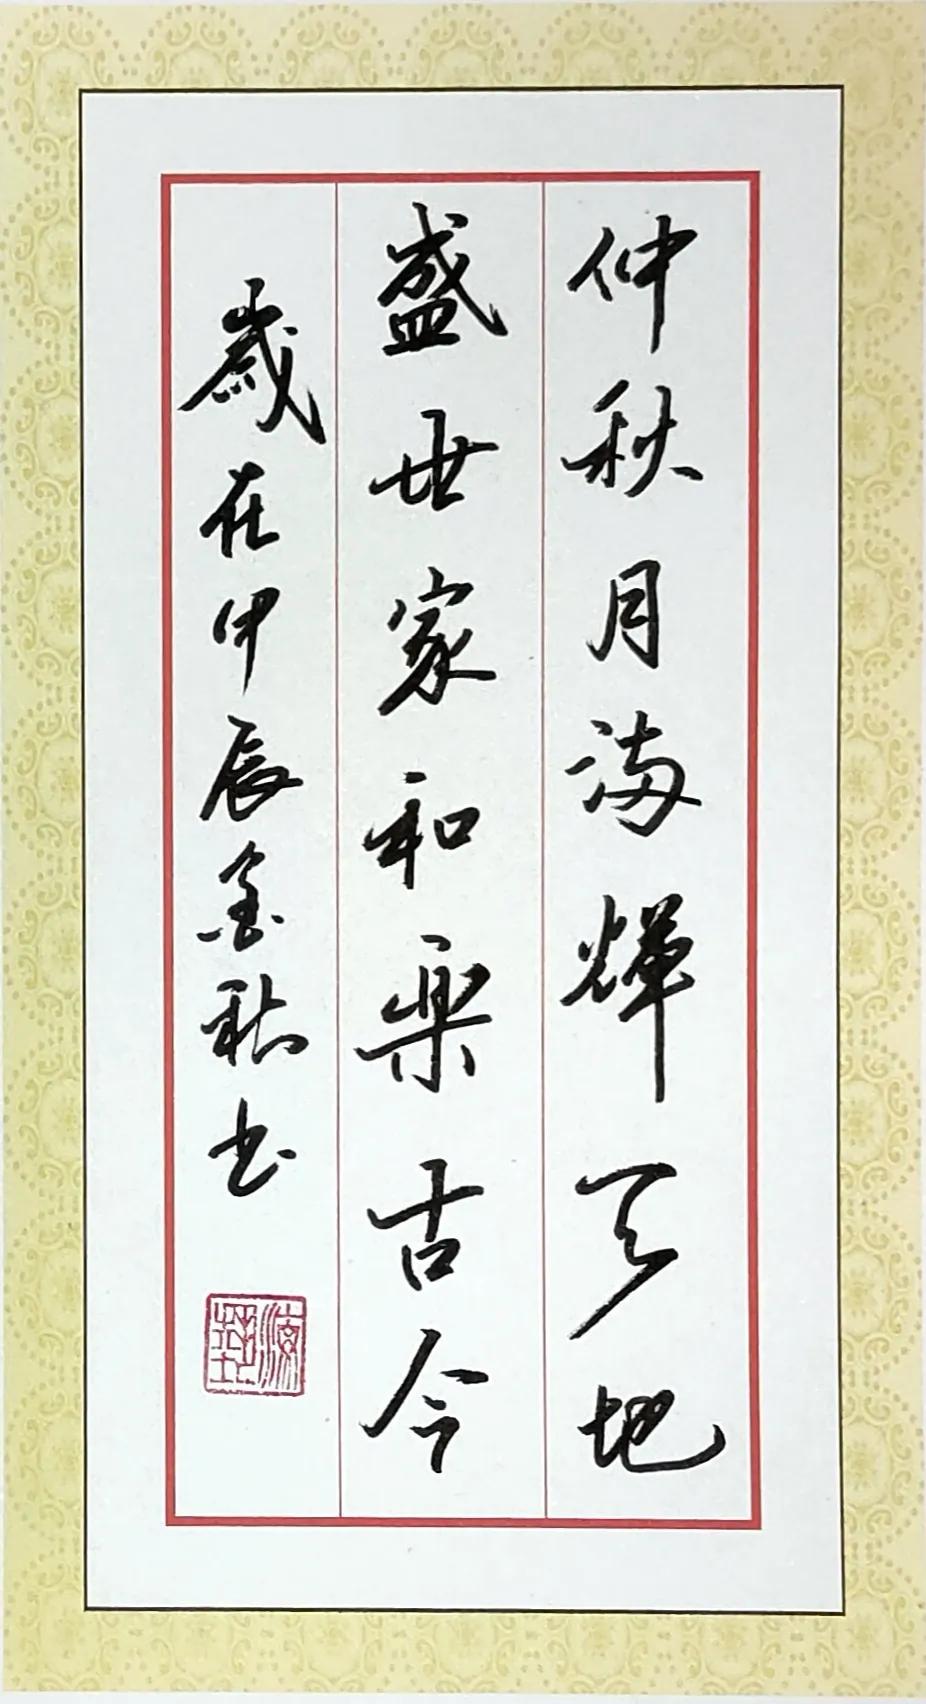 仲秋月满辉天地
盛世家和乐古今
歲在甲辰金秋书